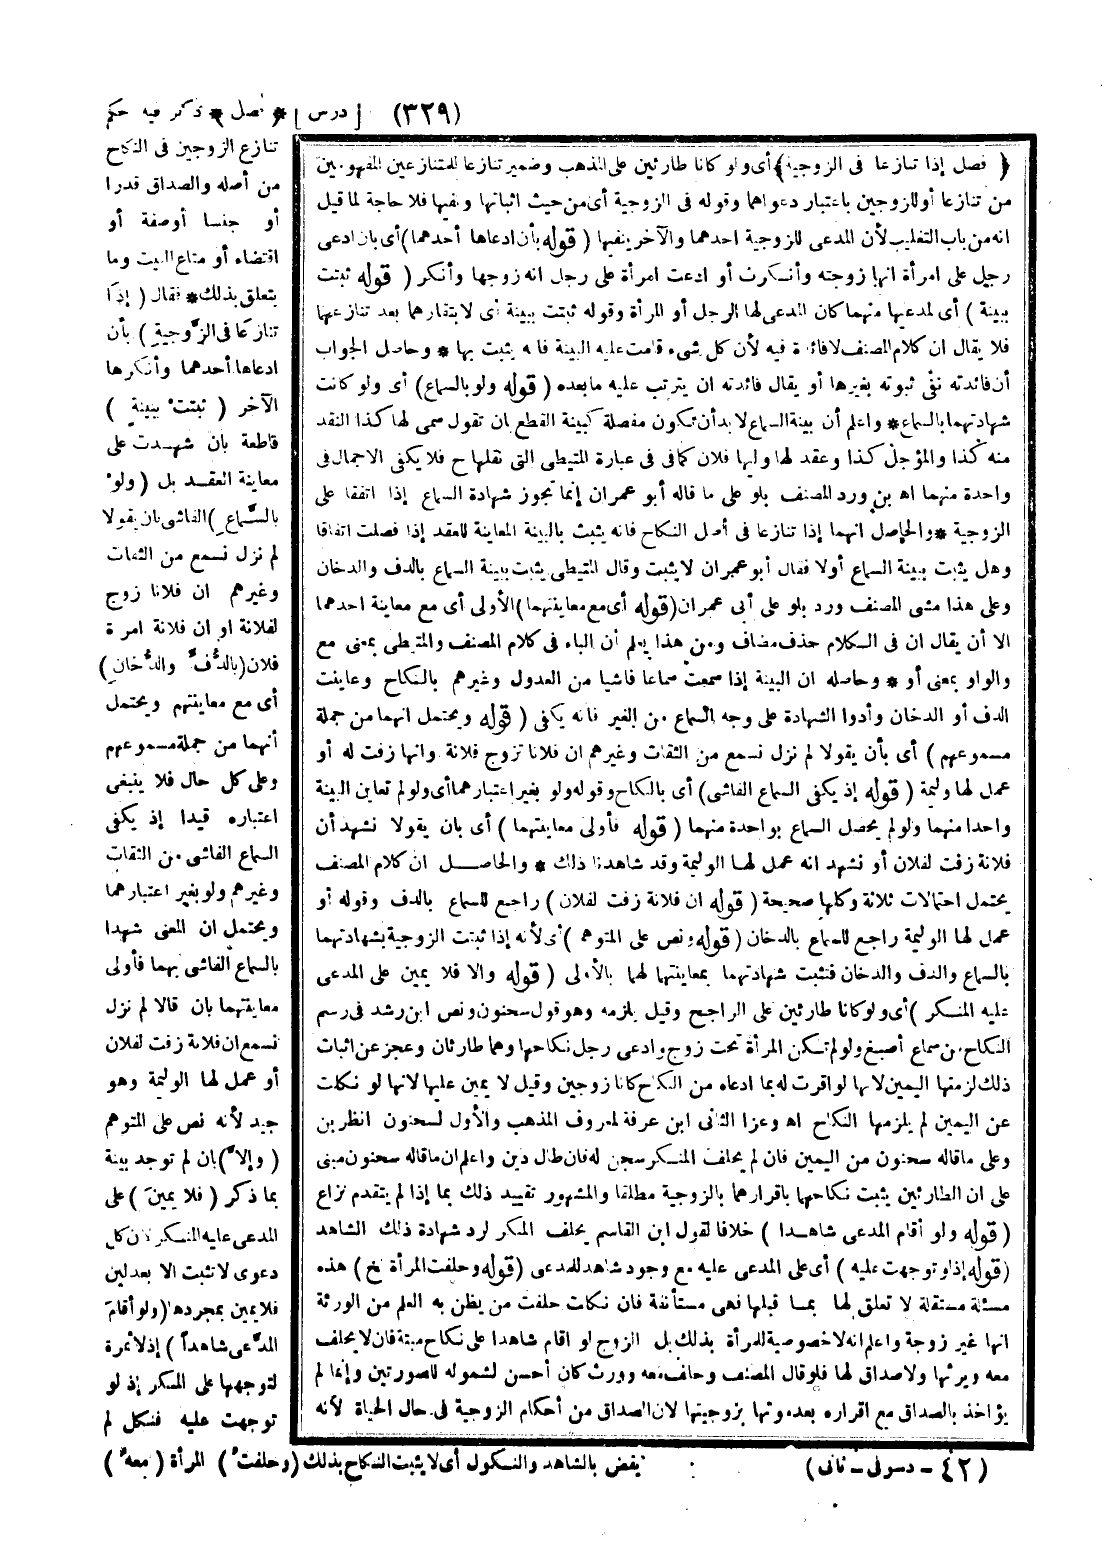 (٣٢٩)
[درس] * فصل * ذكر فيه حكم
تنازع الزوجين فى النكاح
من أصله والصداق قدرا
أو جنسا أو صفة أو
اقتضاء أو متاع البيت وما
يتعلق بذلك * فقال (إذا
تنازعا فى الزوجية) بأن
ادعاها أحدهما وأنكرها
الآخر (ثبتت ببينة)
قاطعة بان شهدت على
معاينة العقد بل (ولو
بالسماع) الفاشى بان يقولا
لم نزل نسمع من الثقات
وغيرهم ان فلانا زوج
لفلانة او ان فلانة امرة
فلان (بالدف والدخان)
أى مع معاينتهم ويحتمل
أنهما من جملة مسموعهم
وعلى كل حال فلا ينبغى
اعتباره قيدا إذ يكفى
السماع الفاشى من الثقات
وغيرهم ولو بغير اعتبارهما
ويحتمل ان المعنى شهدا
بالسماع الفاشى بهما فأولى
معاينتهما بان قالا لم نزل
نسمع ان فلانة زفت لفلان
أو عمل لها الوليمة وهو
جيد لأنه نص على المتوهم
(وإلا) بان لم توجد بينة
بما ذكر (فلا يمين) على
المدعى عليه المنكر لان كل
دعوى لا تثبت الا بعدلين
فلا يمين بمجردها (ولو أقام
المدعى شاهداً) إذ لا ثمرة
لتوجهها على المنكر إذ لو
توجهت عليه فنكل لم
يقض بالشاهد والنكول أى لا يثبت النكاح بذلك (وحلفت) المرأة (معه)
﴿فصل إذا تنازعا فى الزوجية﴾ أى ولو كانا طارئين على المذهب وضمير تنازعا للمتنازعين المفهومين
من تنازعا أو للزوجين باعتبار دعواهما وقوله فى الزوجية أى من حيث اثباتها ونفيها فلا حاجة لما قيل
انه من باب التغليب لأن المدعى للزوجية احدهما والآخر ينفيها (قوله بأن ادعاها أحدهما) أى بان ادعى
رجل على امرأة انها زوجته وأنكرت أو ادعت امرأة على رجل انه زوجها وأنكر (قوله ثبتت
ببينة) أى لمدعيها منهما كان المدعى لها الرجل أو المرأة وقوله ثبتت ببينة أى لا بتقاررهما بعد تنازعها
فلا يقال ان كلام المصنف لا فائدة فيه لأن كل شىء قامت عليه البينة فانه يثبت بها * وحاصل الجواب
أن فائدته نفى ثبوته بغيرها أو يقال فائدته ان يترتب عليه ما بعده (قوله ولو بالسماع) أى ولو كانت
شهادتهما بالسماع * واعلم أن بينة السماع لا بد أن تكون مفصلة كبينة القطع بان تقول سمى لها كذا النقد
منه كذا والمؤجل كذا وعقد لها وليها فلان كما فى فى عبارة المتيطى التى نقلها ح فلا يكفى الاجمال فى
واحدة منهما اه بن ورد المصنف بلو على ما قاله أبو عمران إنما تجوز شهادة السماع إذا اتفقا على
الزوجية * والحاصل انهما إذا تنازعا فى أصل النكاح فانه يثبت بالبينة المعاينة للعقد إذا فصلت اتفاقا
وهل يثبت ببينة السماع أولا فقال أبو عمران لا يثبت وقال المتيطى يثبت ببينة السماع بالدف والدخان
وعلى هذا مشى المصنف ورد بلو على أبى عمران (قوله أى مع معاينتهما) الأولى أى مع معاينة احدهما
الا أن يقال ان فى الكلام حذف مضاف ومن هذا يعلم أن الباء فى كلام المصنف والمتيطى بمعنى مع
والواو بمعنى أو * وحاصله ان البينة إذا سمعت سماعا فاشيا من العدول وغيرهم بالنكاح وعاينت
الدف أو الدخان وأدوا الشهادة على وجه السماع من الغير فانه يكفى (قوله ويحتمل انهما من جملة
مسموعهم) أى بأن يقولا لم نزل نسمع من الثقات وغيرهم ان فلانا تزوج فلانة وانها زفت له أو
عمل لها وليمة (قوله إذ يكفى السماع الفاشى) أى بالنكاح وقوله ولو بغير اعتبارهما أى ولو لم تعاين البينة
واحدا منهما ولو لم يحصل السماع بواحدة منهما (قوله فأولى معاينتهما) أى بان يقولا نشهد أن
فلانة زفت لفلان أو نشهد انه عمل لها الوليمة وقد شاهدنا ذلك * والحاصل ان كلام المصنف
يحتمل احتمالات ثلاثة وكلها صحيحة (قوله ان فلانة زفت لفلان) راجع للسماع بالدف وقوله أو
عمل لها الوليمة راجع للسماع بالدخان (قوله ونص على المتوهم) أى لأنه إذا ثبتت الزوجية بشهادتهما
بالسماع والدف والدخان فتثبت شهادتهما بمعاينتها لهما بالأولى (قوله والا فلا يمين على المدعى
عليه المنكر) أى ولو كانا طارئين على الراجح وقيل يلزمه وهو قول سحنون ونص ابن رشد فى رسم
النكاح من سماع أصبغ ولو لم تكن المرأة تحت زوج وادعى رجل نكاحها وهما طارئان وعجز عن اثبات
ذلك لزمتها اليمين لانها لو اقرت له بما ادعاه من النكاح كانا زوجين وقيل لا يمين عليها لانها لو نكلت
عن اليمين لم يلزمها النكاح اه وعزا الثانى ابن عرفة لمعروف المذهب والأول لسحنون انظر بن
وعلى ما قاله سحنون من اليمين فان لم يحلف المنكر سجن له فان طال دين واعلم ان ما قاله سحنون مبنى
على ان الطارئين يثبت نكاحها باقرارهما بالزوجية مطلقا والمشهور تقييد ذلك بما إذا لم يتقدم نزاع
(قوله ولو أقام المدعى شاهدا) خلافا لقول ابن القاسم يحلف المنكر لرد شهادة ذلك الشاهد
(قوله إذ لو توجهت عليه) أى على المدعى عليه مع وجود شاهد للمدعى (قوله وحلفت المرأة الخ) هذه
مسئلة مستقلة لا تعلق لها بما قبلها فهى مستأنفة فان نكلت حلفت من يظن به العلم من الورثة
انها غير زوجة واعلم انه لا خصوصية للمرأة بذلك بل الزوج لو اقام شاهدا على نكاح ميتة فان لا يحلف
معه ويرثها ولا صداق لها فلو قال المصنف وحلف معه وورث كان أحسن لشموله للصورتين وإنما لم
يؤاخذ بالصداق مع اقراره بعد موتها بزوجيتها لان الصداق من أحكام الزوجية فى حال الحياة لأنه
(٤٢ - دسوقى - ثانى)